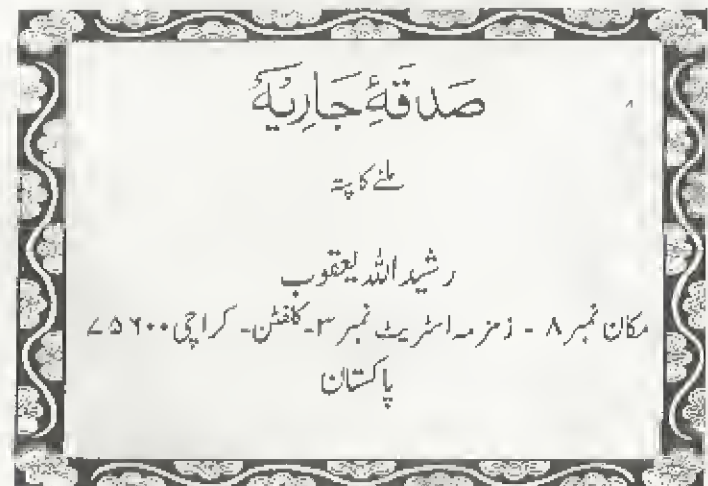 صَدقَۂِ جَارِیَۂ
ملنے کا پتہ
رشید اللہ یعقوب
مکان نمبر ۸ - زمزمہ اسٹریٹ نمبر ۳-کلفٹن- کراچی ۷۵۶۰۰
پاکستان